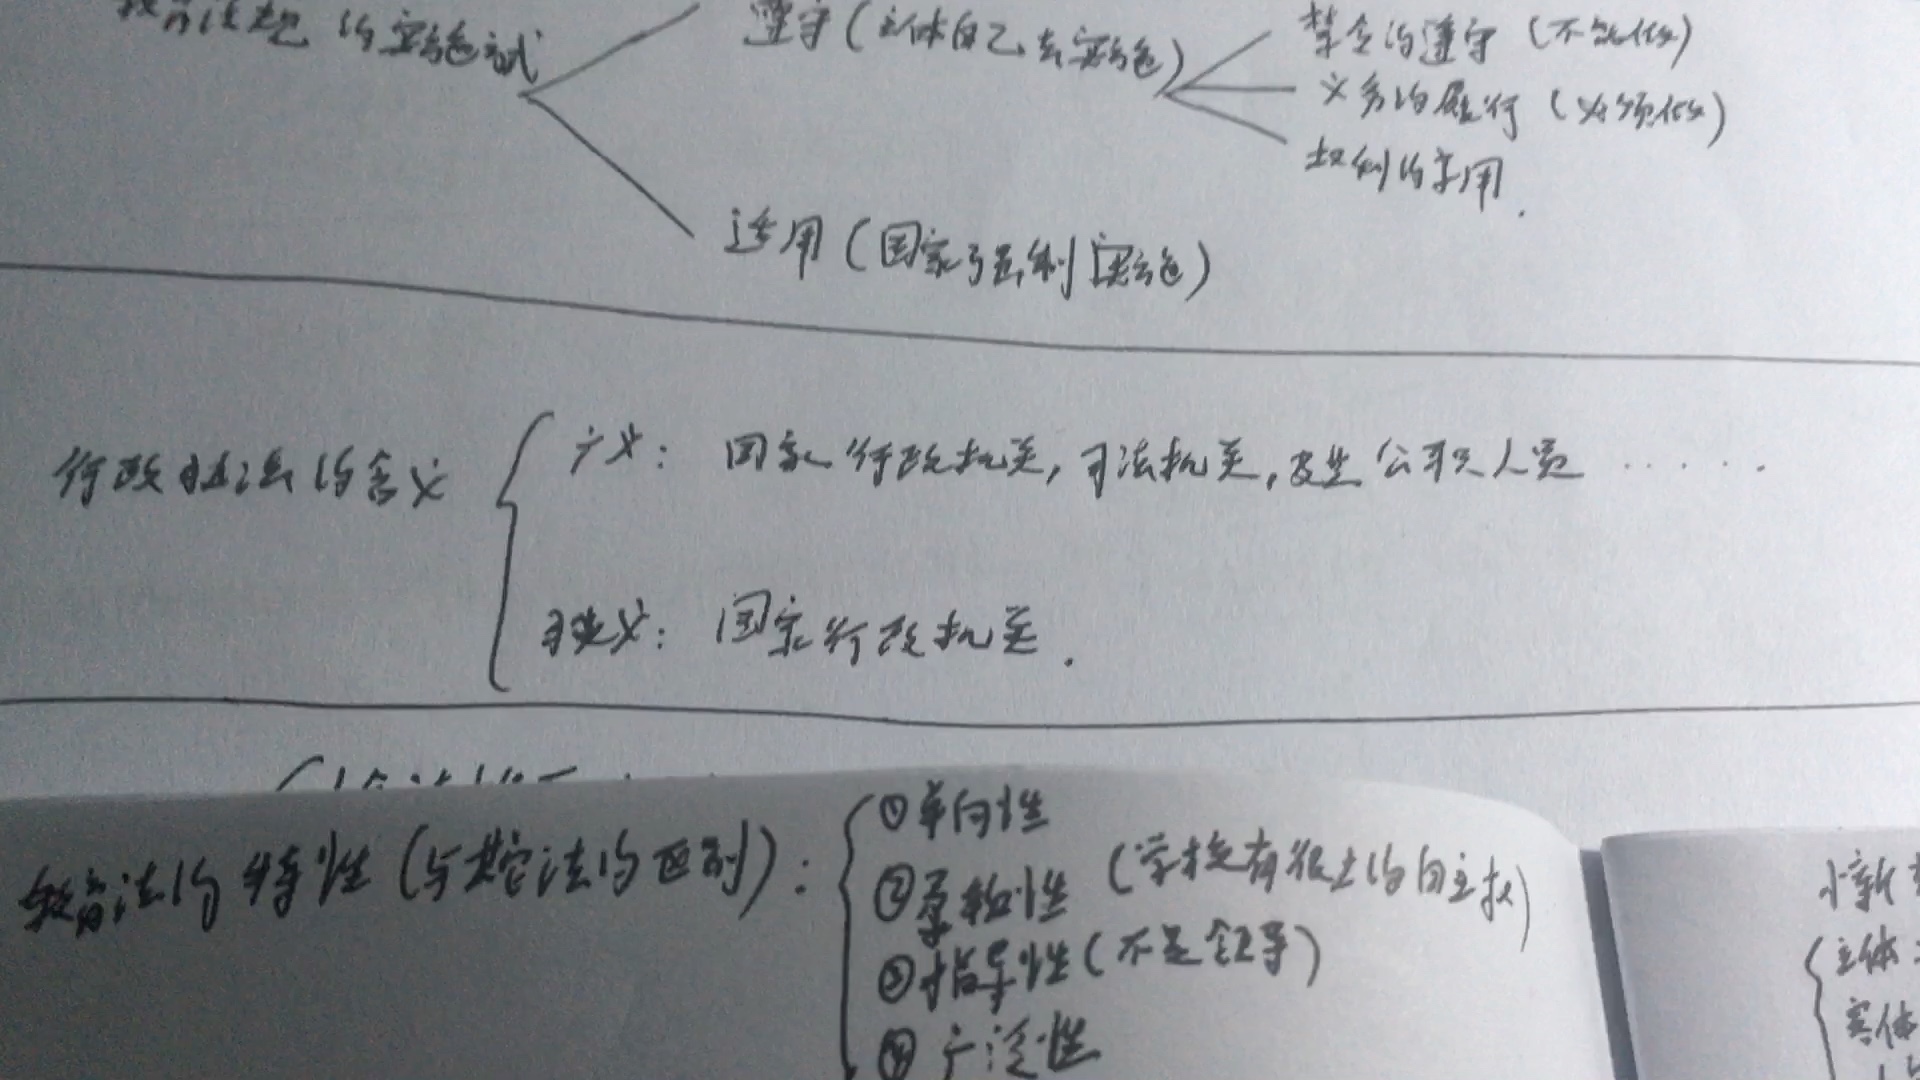 教育法规的实施方式
遵守（主体自己去实施）
禁令的遵守（不能做）
义务的履行（必须做）
权利的享用.
适用（国家强制实施）
行政执法的含义
广义：国家行政机关,司法机关,及其公职人员……
狭义：国家行政机关.
教育法的特性（与其它法的区别）：
①单向性
②柔软性（学校有很大的自主权）
③指导性（不是领导）
④广泛性
主体
实体